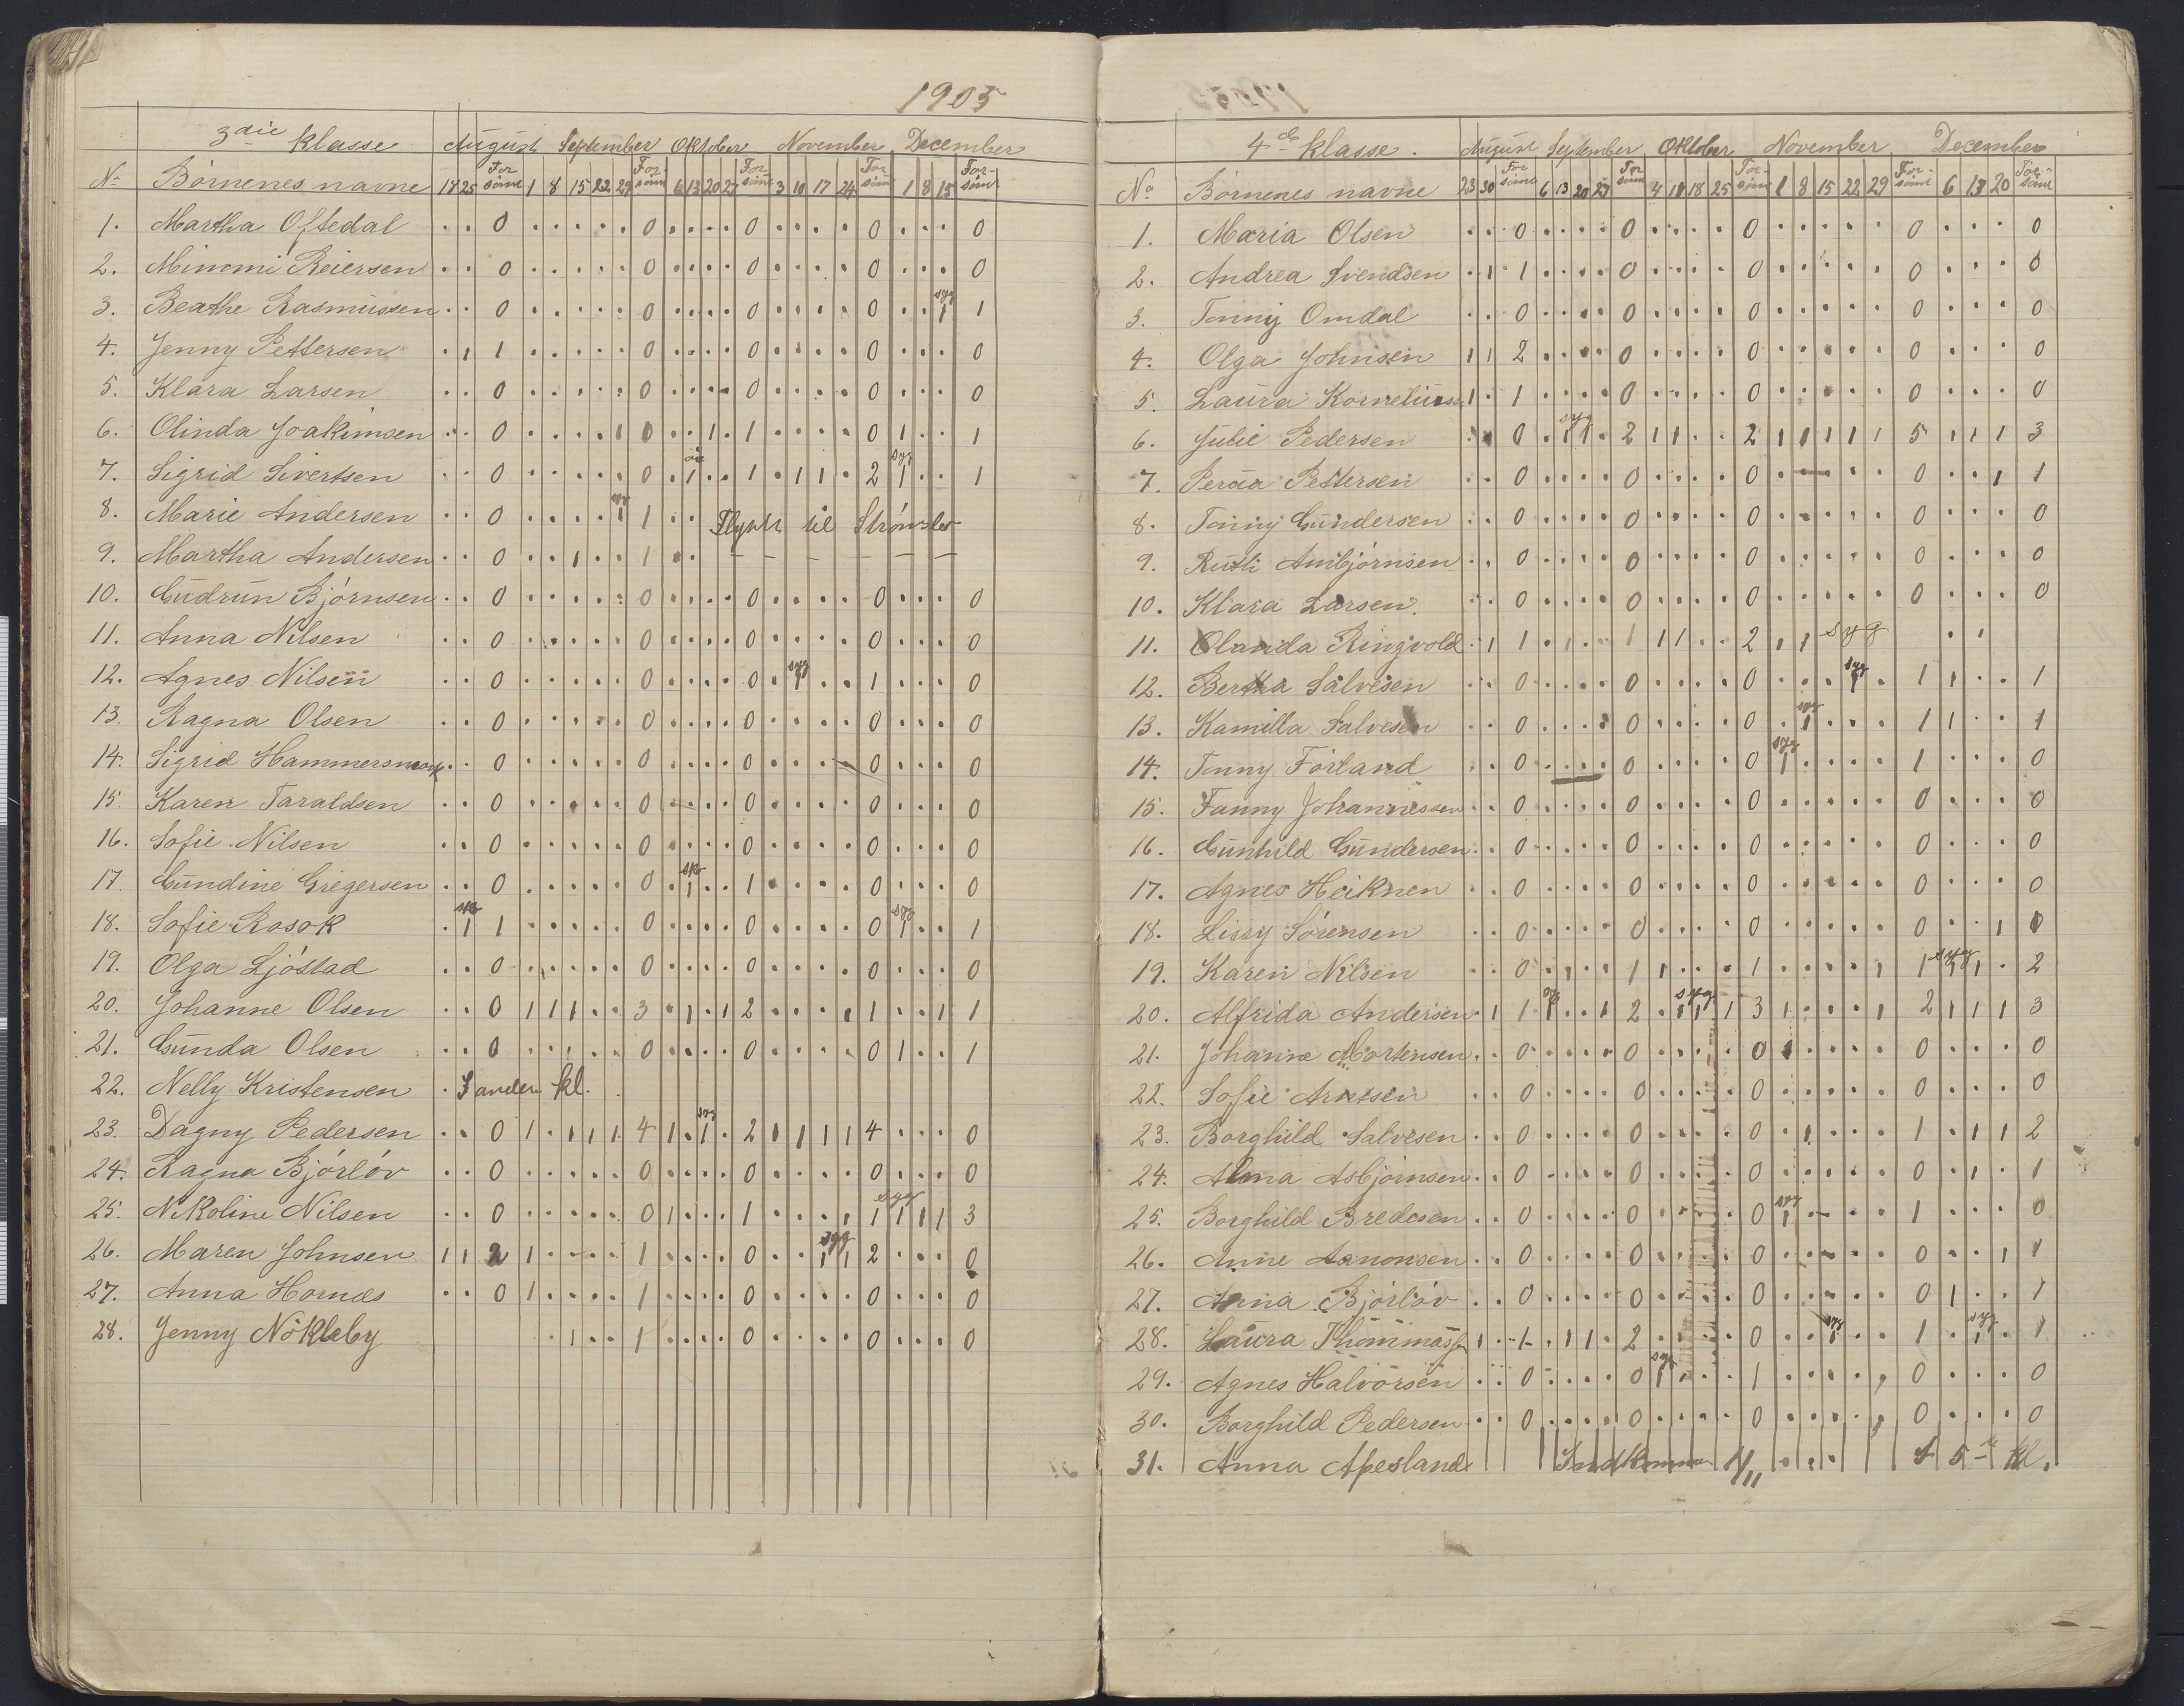 1905
3die klasse August September Oktober November December
No Börnenes navne 18 25 For sömt 1 8 15 22 29 For- sömt 6 13 20 27 For sömt 3 10 17 24 For sömt 1 8 15 For- sömt
1. Martha Oftedal . . 0 . . . . . 0 . . . . 0 . . . . 0 . . . 0
2. Mimmi Reiersen . . 0 . . . . . 0 . . . . 0 . . . . 0 . . . 0
3. Beathe Rasmussen . . 0 . . . . . 0 . . . . 0 . . . . 0 . . syg 1 1
4. Jenny Pettersen . 1 1 . . . . . 0 . . . . 0 . . . . 0 . . . 0
5. Klara Larsen . . 0 . . . . . 0 . . . . 0 . . . . 0 . . . 0
6. Olinda Joakimsen . . 0 . . . . 1 0 . . 1 . 1 . . . . 0 1 . . 1
7. Sigrid Sivertsen . . 0 . . . . . 0 . 1 . . 1 . 1 1 . 2 syg 1 . . 1
8. Marie Andersen . . 0 . . . . syg 1 1 . . Flyttet til
9. Martha Andersen . . 0 . . 1 . . 1 . . – – – – – –
10. Gudrun Björnsen . . 0 . . . . . 0 . . . . 0 . . . . 0 . . . 0
11. Anna Nilsen . . 0 . . . . . 0 . . . . 0 . . . . 0 . . . 0
12. Agnes Nilsen . . 0 . . . . . 0 . . . . 0 . syg 1 . . 1 . . . 0
13. Ragna Olsen . . 0 . . . . . 0 . . . . 0 . . . . 0 . . . 0
14. Sigrid Hammersmark . . 0 . . . . . 0 . . . . 0 . . . . 0 . . . 0
15. Karen Taraldsen . . 0 . . . . . 0 . . . . 0 . . . . 0 . . . 0
16. Sofie Nilsen . . 0 . . . . . 0 . . . . 0 . . . . 0 . . . 0
17. Gundine Gregersen . . 0 . . . . . 0 . 1 . . 1 . . . . 0 . . . 0
18. Sofie Rosok . 1 1 . . . . . 0 . . . . 0 . . . . 0 syg 1 . . 1
19. Olga Ljöstad . . 0 . . . . . 0 . . . . 0 . . . . 0 . . . 0
20. Johanne Olsen . . 0 1 1 1 . . 3 . 1 . 1 2 . . . 1 1 . . 1 1
21. Gunda Olsen . . 0 . . . . . 0 . . . . 0 . . . . 0 1 . . 1
22. Nelly Kristensen . I anden kl.
23. Dagny Pedersen . . 0 1 . 1 1 1 4 1 . syg 1 . 2 1 1 1 1 4 . . . 0
24. Ragna Björlöv . . 0 . . . . . 0 . . . . 0 . . . . 0 . . . 0
25. Nikoline Nilsen . . 0 . . . . . 0 1 . . . 1 . . . 1 1 syg 1 1 1 3
26. Maren Johnsen 1 1 2 1 . . . . 1 . . . . 0 . . syg 1 1 2 . . . 0
27. Anna Hornæs . . 0 1 . . . . 1 . . . . 0 . . . . 0 . . . 0
28. Jenny Nökleby . 1 . . 1 . . . . 0 . . . . 0 . . . 0
4de klasse. August September Oktober November December
No Börnenes navne 23 30 For sömt 6 13 20 27 For sömt 4 11 18 25 For- sömt 1 8 15 22 29 For- sömt 6 13 20 For- sömt
1. Maria Olsen . . 0 . . . . 0 . . . . 0 . . . . . 0 . . . 0
2. Andrea Svendsen . 1 1 . . . . 0 . . . . 0 . . . . . 0 . . . 0
3. Tonny Omdal . . 0 . . . . 0 . . . . 0 . . . . . 0 . . . 0
4. Olga Johnsen 1 1 2 . . . . 0 . . . . 0 . . . . . 0 . . . 0
5. Laura Korneliussen 1 . 1 . . . . 0 . . . . 0 . . . . . 0 . . . 0
6. Julie Pedersen . . 0 . syg 1 1 . 2 1 1 . . 2 1 1 1 1 1 5 1 1 1 3
7. Petersen . . 0 . . . . 0 . . . . 0 . . . . . 0 . . 1 1
8. Tonny Gundersen . . 0 . . . . 0 . . . . 0 . . . . . 0 . . . 0
9. Ruth Ambjörnsen . . 0 . . . . 0 . . . . 0 . . . . . 0 . . . 0
10. Klara Larsen. . . 0 . . . . 0 . . . . 0 . . . . . 0 . . . 0
11. Olanda Ringvold . 1 1 . 1 . . 1 1 1 . . 2 1 1 syg . .
12. Bertha Salvesen . . 0 . . . . 0 . . . . 0 . . . syg 1 . 1 1 . . 1
13. Kamilla Salvesen . . 0 . . . . 0 . . . . 0 . syg 1 . . . 1 1 . . 1
14. Tonny Förland . . 0 . . . . 0 . . . . 0 syg 1 . . . . 1 . . . 0
15. Fanny Johannessen . . 0 . . . . 0 . . . . 0 . . . . . 0 . . . 0
16. Gunhild Gundersen . . 0 . . . . 0 . . . . 0 . . . . . 0 . . . 0
17. Agnes Heiknen . . 0 . . . . 0 . . . . 0 . . . . . 0 . . . 0
18. Lissy Sörensen . . 0 . . . . 0 . . . . 0 . . . . . 0 . . 1
19. Karen Nilsen . . 0 . 1 . . 1 1 . . . 1 . . . . 1 1 syg 1 1 . 2
20. Alfrida Andersen . 1 1 syg 1 . . 1 2 . syg 1 1 1 3 1 . . . 1 2 1 1 1 3
21. Johanne Mortensen . . 0 . . . . 0 . . . . 0 . . . . . 0 . . . 0
22. Sofie Arntsen . . 0 . . . . 0 . . . . 0 . . . . . 0 . . . 0
23. Borghild Salvesen . . 0 . . . . 0 . . . . 0 . 1 . . . 1 . 1 1 2
24. Alma Asbjörnsen . . 0 . . . . 0 . . . . 0 . . . . . 0 . 1 . 1
25. Borghild Bredesen . . 0 . . . . 0 . . . . 0 syg 1 . . . . 1 . . . 0
26. Anne Aanonsen . . 0 . . . . 0 . . . . 0 . . . . . 0 . . 1 1
27. Anna Björlöv . . 0 . . . . 0 . . . . 0 . . . . . 0 1 . . 1
28. Laura Thommassen 1 . 1 . 1 1 . 2 . . . . 0 . . syg 1 . . 1 . syg 1 . 1
29. Agnes Halvorsen . . 0 . . . . 0 syg 1 . . . 1 . . . . , 0 . . . 0
30. Borghild Pedersen . . 0 . . . . 0 . . . . 0 . . . . , 0 . . . 0
31. Anna Apesland Indkommen 1/11 . . . . I 5te kl.